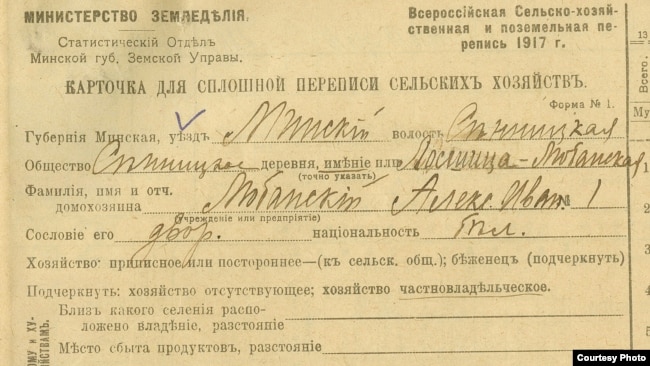 МИНИСТЕРСТВО ЗЕМЛЕДѢЛІЯ.
Статистическій Отдѣлъ
Минской губ. Земской Управы.
Всероссійская Сельско-хозяй-
ственная и поземельная пе-
репись 1917 г.
КАРТОЧКА ДЛЯ СПЛОШНОЙ ПЕРЕПИСИ СЕЛЬСКИХЪ ХОЗЯЙСТВЪ.
Форма № 1.
Губернія Минская, уѣздъ Минскій волость Сѣницкая
Общество Сѣницкое деревня, имѣніе или Лошица-Любанская
(точно указать)
Фамилія, имя и отч.
домохозяина Любанскій Алекс. Иван. № 1
(учрежденіе или предпріятіе)
Сословіе его двор. національность бѣл.
Хозяйство: приписное или постороннее—(къ сельск. общ.); бѣженец (подчеркнуть)
Подчеркнуть: хозяйство отсутствующее; хозяйство частновладѣльческое.
Близъ какого селенія распо-
ложено владѣніе, разстояніе
Мѣсто сбыта продуктов, разстояніе
13
Всего.
Му
1
2
3
4
5
ОМУ И ХУ-
ЯЙСТВАМЪ.
Courtesy Photo